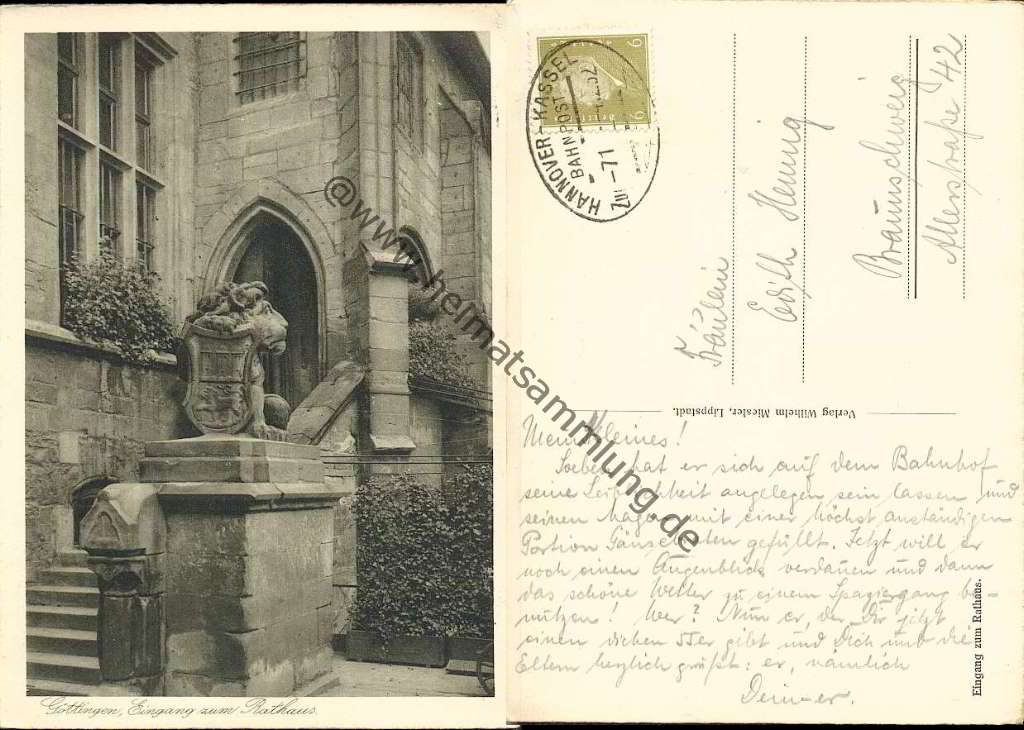 Göttingen, Eingang zum Rathaus.
@www.heimatsammlung.de
HANNOVER-KASSEL
BAHNPOST
ZUG 71
6 6
Fräulein
Edith Hennig
Braunschweig
Allerstraße 42
Verlag Wilhelm Miesler, Lippstadt.
Mein Kleines!
Soeben hat er sich auf dem Bahnhof
seine Leiblichkeit angelegen sein lassen und
seinen Magen mit einer höchst anständigen
Portion Gänsebraten gefüllt. Jetzt will er
noch einen Augenblick verdauen und dann
das schöne Wetter zu einem Spaziergang be-
nutzen! Wer? Nun er, der Dir jetzt
einen dicken gibt und Dich und die
Eltern herzlich grüßt: er, nämlich
Dein-er.
Eingang zum Rathaus.